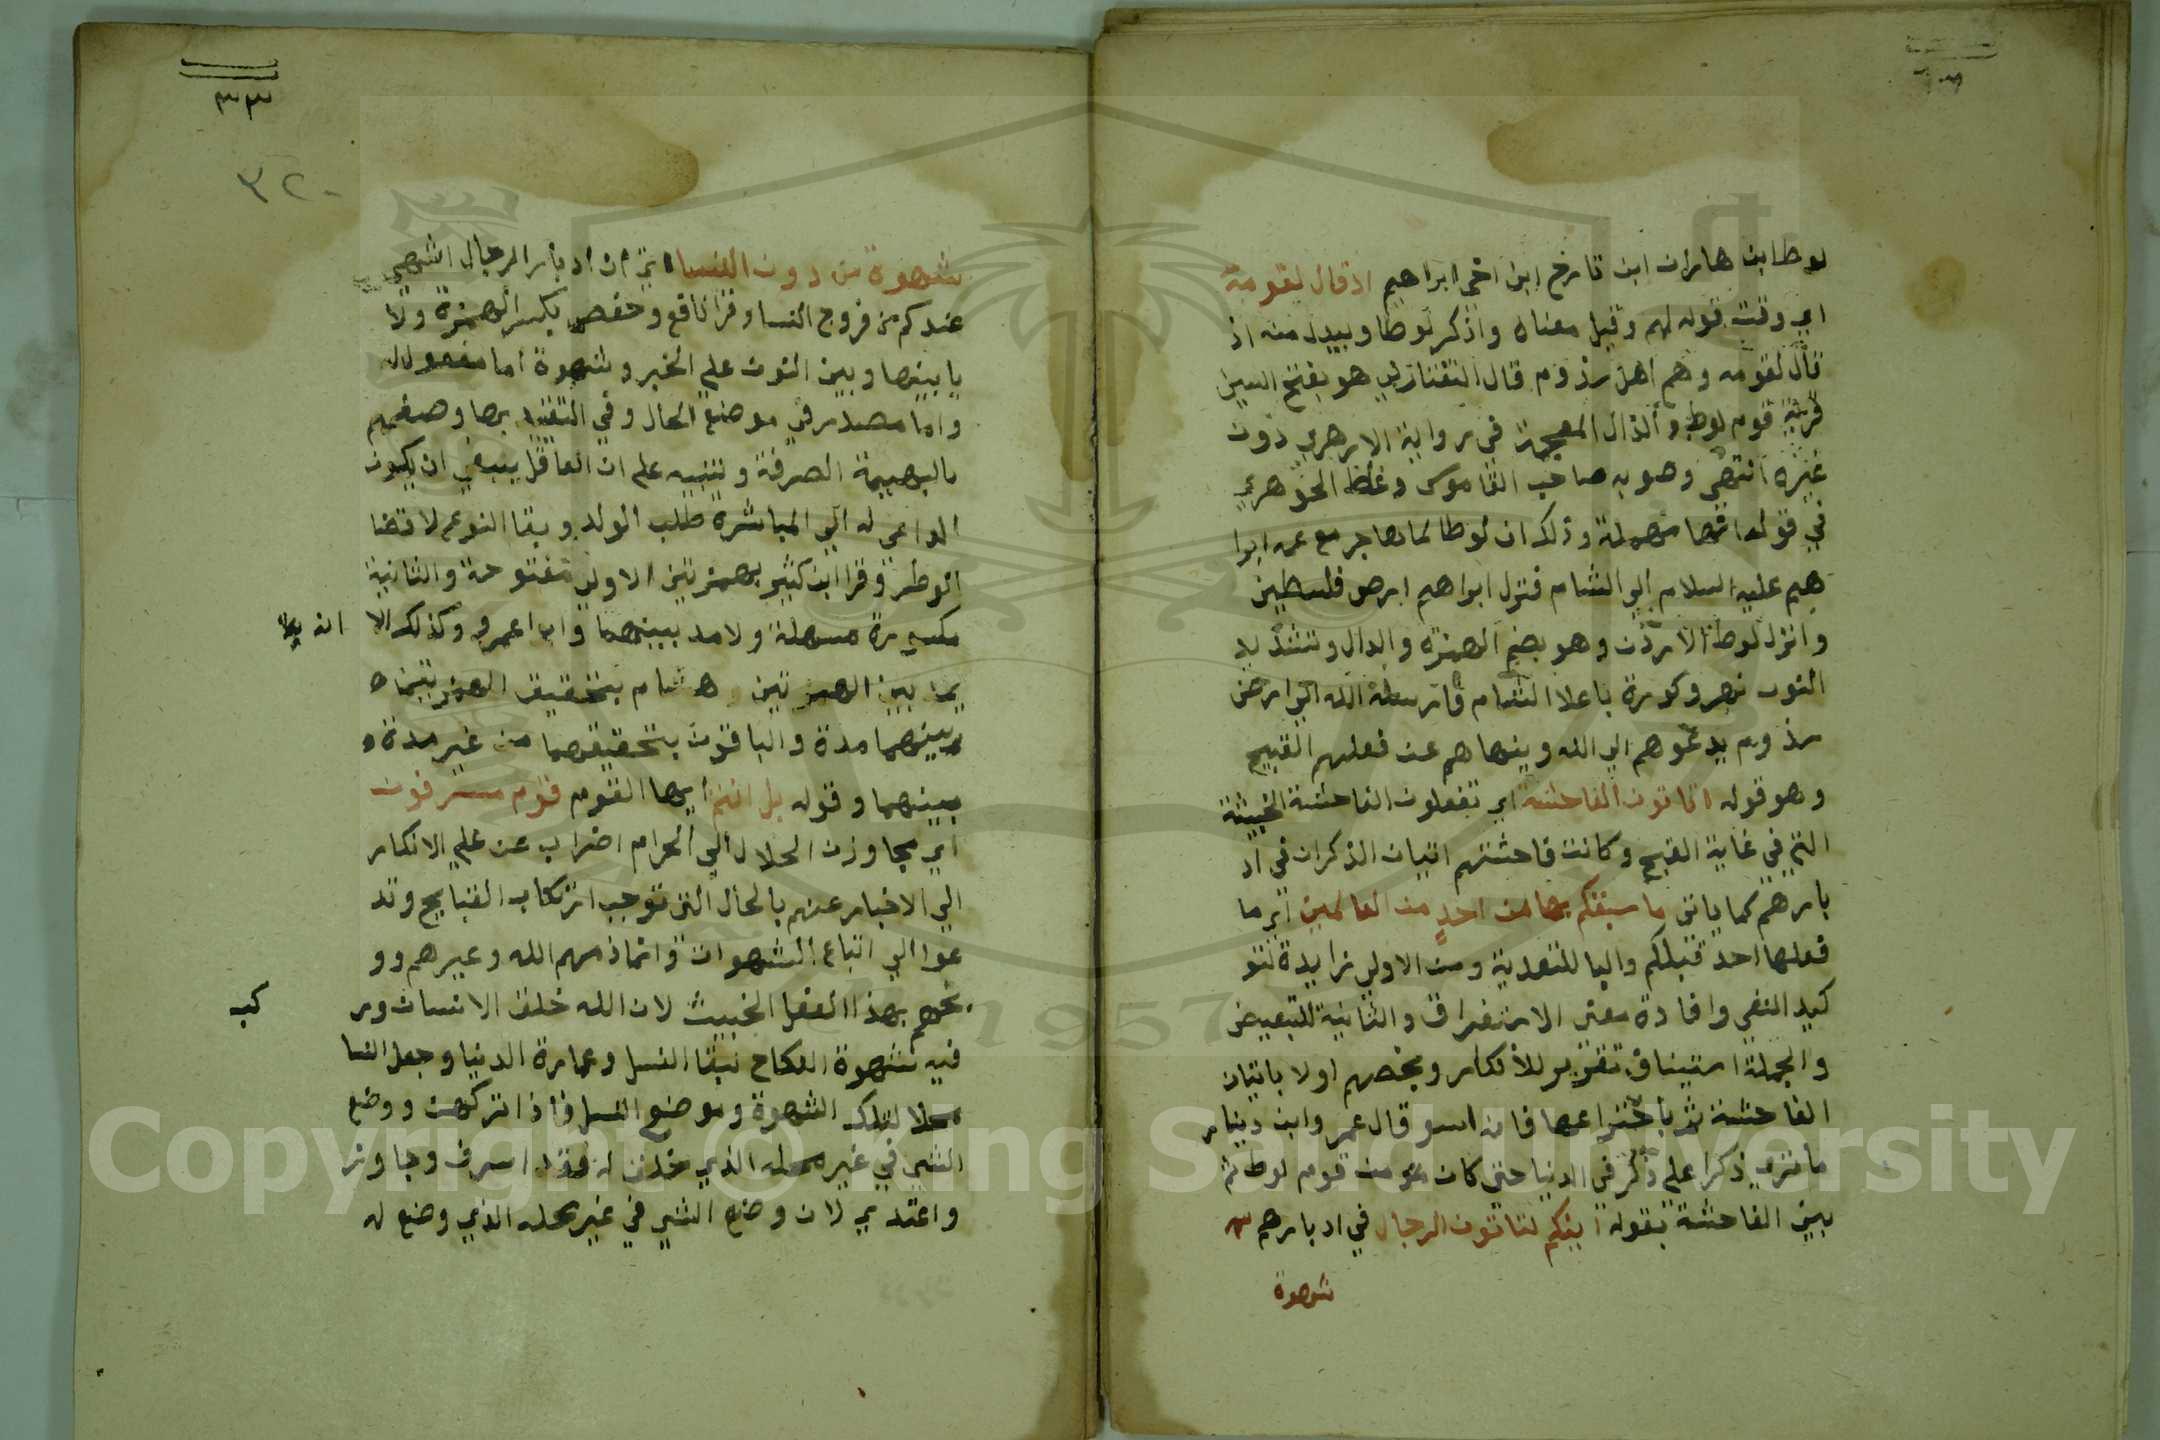 لوطا ابن هاران ابن تارخ ابن اخي ابراهيم اذ قال لقومه
اي وقت قوله لهم وقيل معناه واذكر لوطا ويبدل منه اذ
قال لقومه وهم اهل سذوم قال التفتازاني هو بفتح السين
قرية قوم لوط والذال المعجمة في رواية الازهري دون
غيره انتهى وصوبه صاحب القاموس وغلط الجوهري
في قوله انها مهملة وذلك ان لوطا لما هاجر مع عمه ابرا
هيم عليه السلام الي الشام فنزل ابراهيم ارض فلسطين
وانزل لوط الاردن وهو بضم الهمزة والدال وتشديد
النون نهر وكورة باعلا الشام فارسله الله الي ارض
سذوم يدعوهم الي الله وينهاهم عن فعلهم القبيح
وهو قوله اتاتون الفاحشة اي تفعلون الفاحشة الخبيثة
التي في غاية القبح وكانت فاحشتهم اتيان الذكران في اد
بارهم كما ياتي ما سبقكم بها من احد من العالمين اي ما
فعلها احد قبلكم والبا للتعدية ومن الاولي زايدة لتو
كيد النفي وافادة معني الاستغراق والثانية للتبعيض
والجملة استيناف تقرير للانكار وبخهم اولا باتيان
الفاحشة ثم باختراعها فانه اسو قال عمرو ابن دينار
ما نزي ذكرا علي ذكر في الدنيا حتي كان من قوم لوط ثم
بين الفاحشة بقوله اينكم لتاتون الرجال في ادبارهم
شهوة
٣٣
٣٢
شهوة من دون النسا اي ان ادبار الرجال اشهي
عندكم من فروج النسا وقرا نافع وحفص بكسر الهمزة ولا
يا بينها وبين النون علي الخبر وشهوة اما مفعول له
واما مصدر في موضع الحال وفي التقييد بها وصفهم
بالبهيمة الصرفة وتنبيه علي ان العاقل ينبغي ان يكون
الداعي له الي المباشرة طلب الولد وبقا النوع لا قضا
الوطر وقرا ابن كثير بهمزتين الاولي مفتوحة والثانية
مكسورة مسهلة ولا مد بينهما وابا عمرو وكذلك الا انه
بين الهمزتين وهشام بتحقيق الهمزتين
وبينهما مدة والباقون بتحقيقهما من غير مدة
بينهما وقوله بل انتم ايها القوم قوم مسرفون
اي مجاوزن الحلال الي الحرام اضراب عن علي الانكار
الي الاخبار عنهم بالحال التي توجب ارتكاب القبايح وتد
عوا الي اتباع الشهوات وانما ذمهم الله وعيرهم وو
بخهم بهذا الفعل الخبيث لان الله خلق الانسان ور
كب
فيه شهوة النكاح لبقا النسل وعمارة الدنيا وجعل النسا
محلا لتلك الشهوة وموضع النسل فاذا تركهن ووضع
الشي في غير محله الذي خلق له فقد اسرف وجاوز
واعتدي لان وضع الشي في غير محله الذي وضع له
Copyright © King Saud University
1957